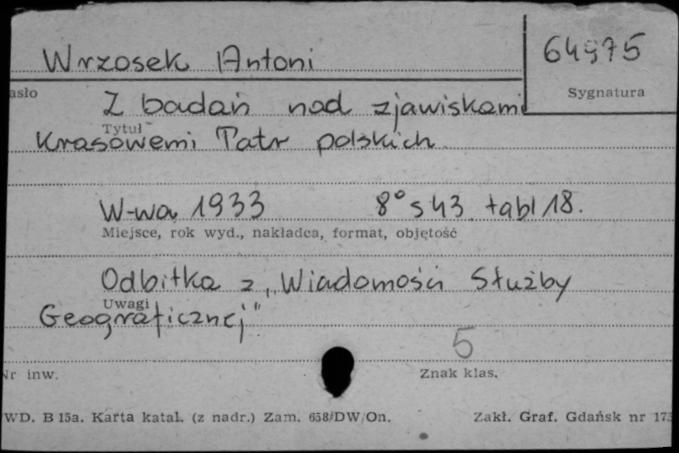 Wrzosek Antoni
64975
asło
Sygnatura
Z badań nad zjawiskami
Tytuł
Krasowemi Tatr polskich
W-wa 1933 8° s 43. tabl 18.
Miejsce, rok wyd., nakładca, format, objętość
Odbitka z „Wiadomości Służby
Uwagi
Geograficznej"
5
Nr inw.
Znak klas.
WD. B 15a. Karta katal. (z nadr.) Zam. 658/DW/On.
Zakł. Graf. Gdańsk nr 173